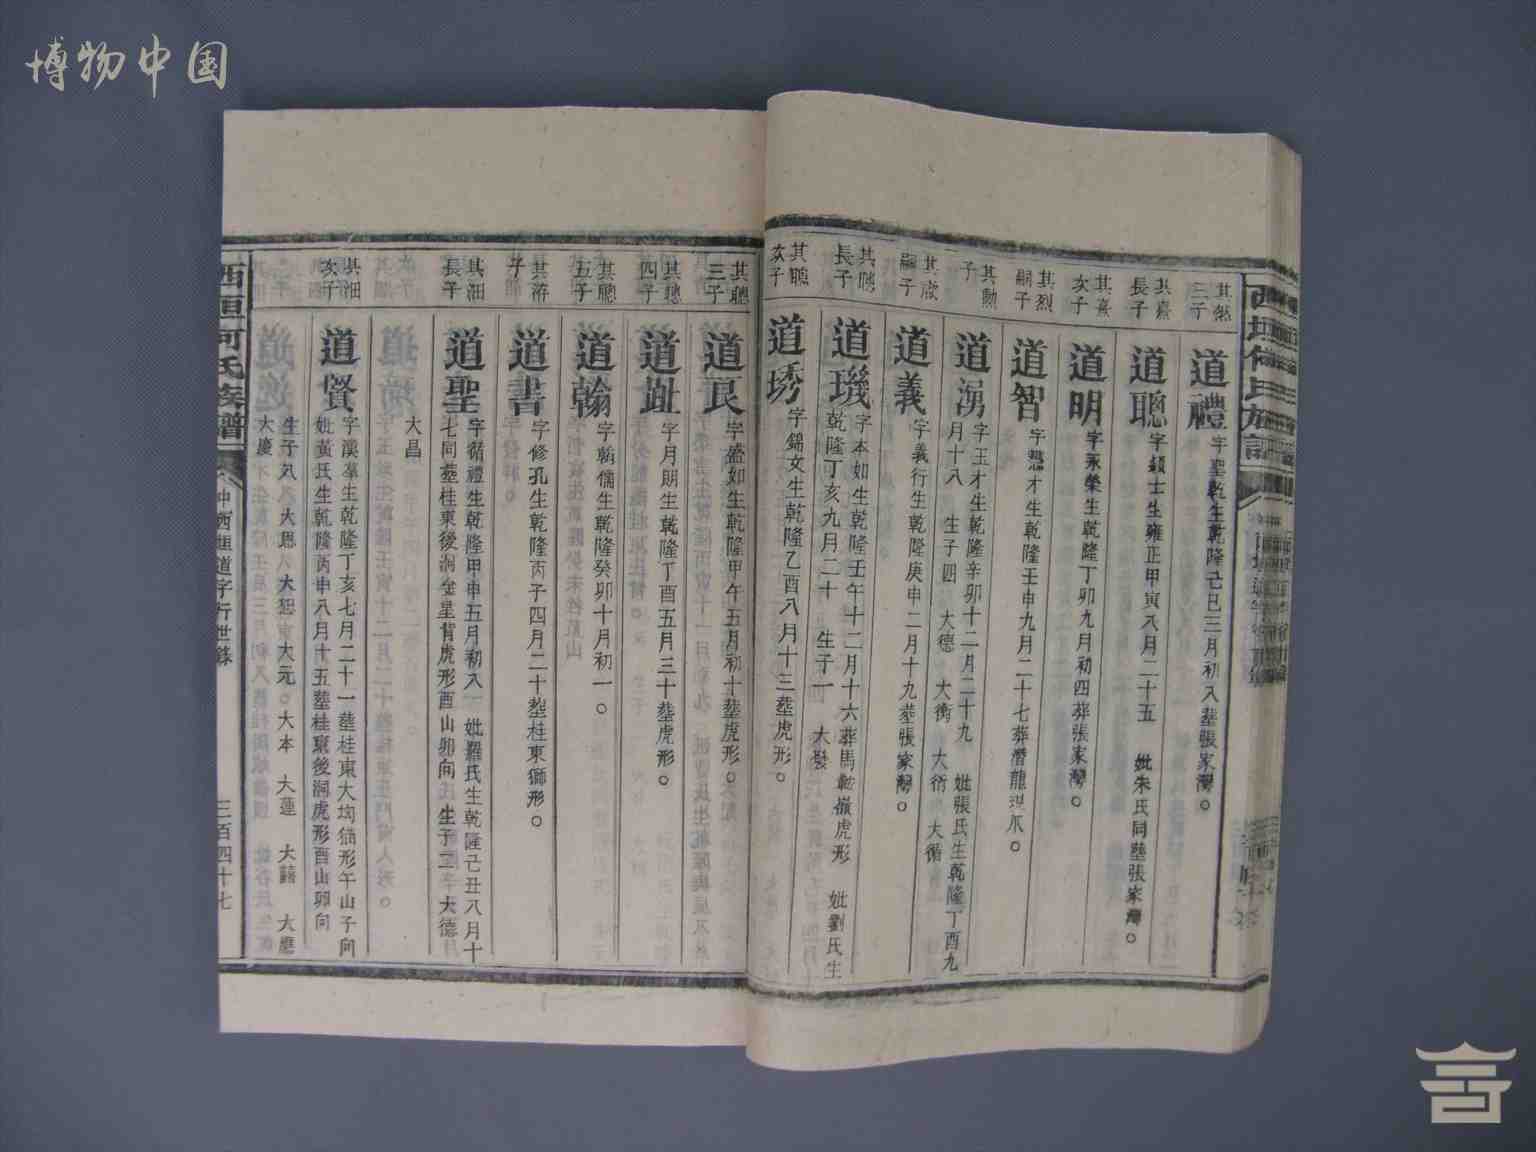 博物中国
其然三子
道禮
字聖乾生乾隆己巳三月初入塟張家灣。
其熹長子
道聰
字穎士生雍正甲寅八月二十五 妣朱氏同塟張家灣。
其熹次子
道明
字永榮生乾隆丁卯九月初四葬張家灣。
其烈嗣子
道智
字慧才生乾隆壬申九月二十七葬潛龍洪爪。
其勲子
道湧
字玉才生乾隆辛卯十二月二十九 妣張氏生乾隆丁酉九
月十八 生子四 大德 大衡 大衍 大循
嗣子
道義
字義行生乾隆庚申二月十九塟張家灣。
其聰長子
道璣
字本如生乾隆壬午十二月十六葬馬鞍嶺虎形 妣劉氏生
乾隆丁亥九月二十 生子一 大發
其聰次子
道琇
字錦文生乾隆乙酉八月十三塟虎形。
其聰三子
道良
字盛如生乾隆甲午五月初十塟虎形。
其聰四子
道趾
字月朗生乾隆丁酉五月三十塟虎形。
其聰五子
道翰
字翰儒生乾隆癸卯十月初一。
其游子
道書
字修孔生乾隆丙子四月二十塟桂東獅形。
其細長子
道聖
字循禮生乾隆甲申五月初入 妣羅氏生乾隆己丑八月十
七同塟桂東後洞金星背虎形酉山卯向 生子二 大德
大昌
其細次子
道賢
字漢擧生乾隆丁亥七月二十一塟桂東大坳猫形午山子向
妣黃氏生乾隆丙申八月十五塟桂東後洞虎形酉山卯向
生子八 大恩 大恕 大元。大本 大蓮 大籍 大應
大慶
西垣何氏族譜
仲西垣道字行世錄
三百四十七